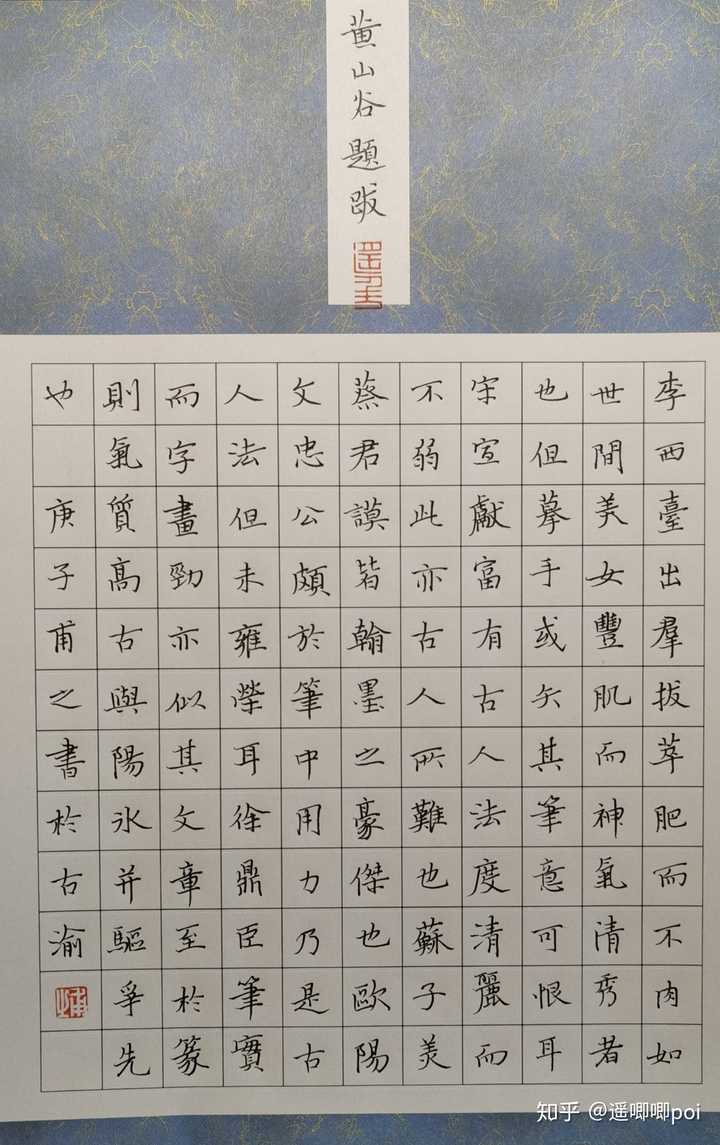 黄山谷題跋
李西臺出羣拔萃肥而不肉如
世間美女豐肌而神氣清秀者
也但摹手或失其筆意可恨耳
宋宣獻富有古人法度清麗而
不弱此亦古人所難也蘇子美
蔡君謨皆翰墨之豪傑也歐陽
文忠公頗於筆中用力乃是古
人法但未雍榮耳徐鼎臣筆實
而字畫勁亦似其文章至於篆
則氣質高古與陽冰并驅爭先
也 庚子甫之書於古渝
知乎 @遥唧唧poi